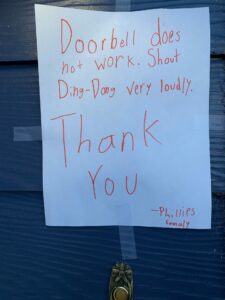 Doorbell does
not work. Shout
Ding-Dong very loudly.
Thank
You
—Phillips
family